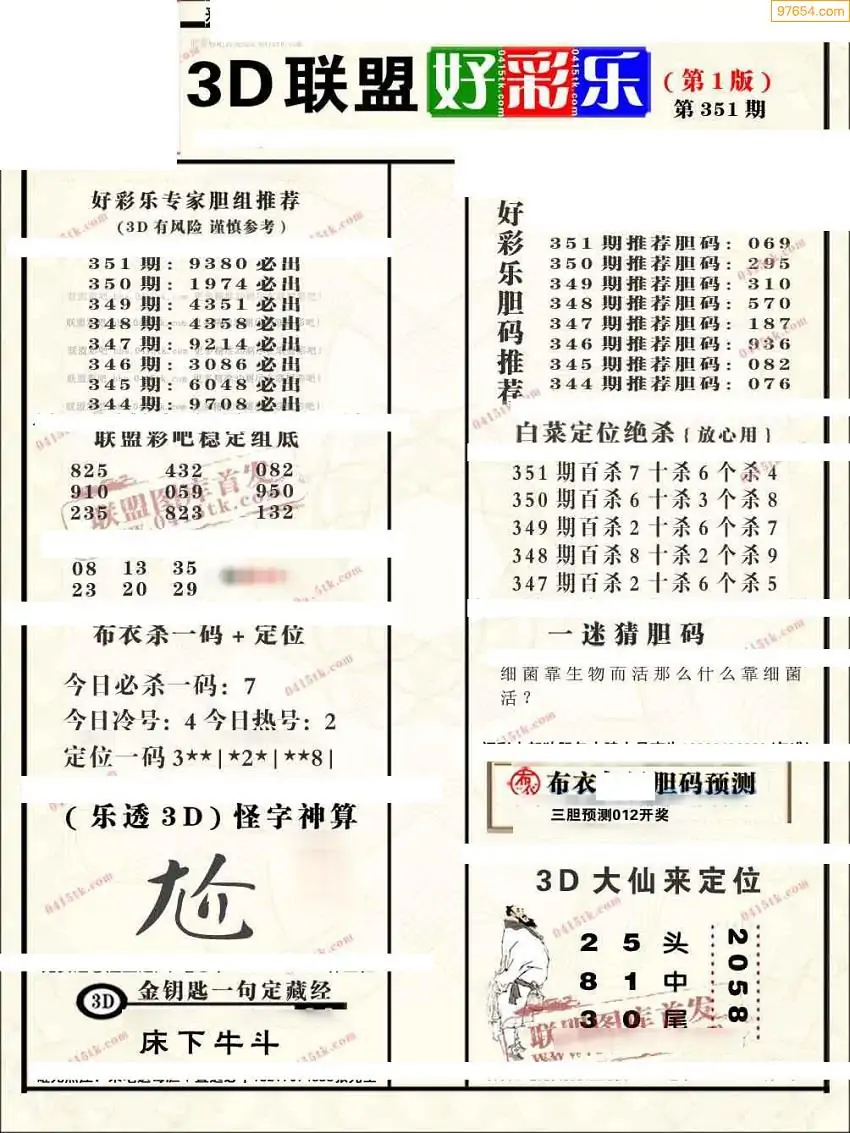 97654.com
3D联盟 好彩乐 (第1版)
第351期
好彩乐专家胆组推荐
(3D有风险 谨慎参考)
351期: 9380必出
350期: 1974必出
349期: 4351必出
348期: 4358必出
347期: 9214必出
346期: 3086必出
345期: 6048必出
344期: 9708必出
联盟彩吧稳定组底
825 432 082
910 059 950
235 823 132
联盟图库首发
www.0415tk.com
08 13 35
23 20 29
布衣杀一码+定位
今日必杀一码: 7
今日冷号: 4 今日热号: 2
定位一码3**|*2*|**8|
(乐透3D)怪字神算
尬
3D 金钥匙一句定藏经
床下牛斗
好彩乐胆码推荐
351期推荐胆码: 069
350期推荐胆码: 295
349期推荐胆码: 310
348期推荐胆码: 570
347期推荐胆码: 187
346期推荐胆码: 936
345期推荐胆码: 082
344期推荐胆码: 076
白菜定位绝杀{放心用}
351期百杀7十杀6个杀4
350期百杀6十杀3个杀8
349期百杀2十杀6个杀7
348期百杀8十杀2个杀9
347期百杀2十杀6个杀5
一迷猜胆码
细菌靠生物而活那么什么靠细菌
活?
布衣 布衣 胆码预测
三胆预测012开奖
3D大仙来定位
2 5 头
8 1 中
3 0 尾
2058
联盟图库首发